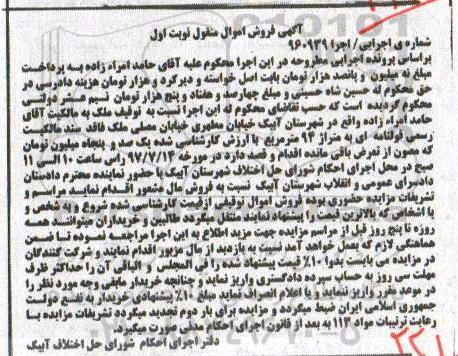 آگهی فروش اموال منقول نوبت اول
شماره ی اجرایی/ اجرا ۹۶۰۹۳۹
براساس پرونده اجرایی مطروحه در این اجرا محکوم علیه آقای حامد امراه زاده به پرداخت
مبلغ نه میلیون و پانصد هزار تومان بابت اصل خواسته و دیرکرد و هزار تومان هزینه دادرسی در
حق محکوم له حسین شاه حسینی و مبلغ چهارصد و هفتاد و پنج هزار تومان نیم عشر دولتی
محکوم گردیده است که حسب تقاضای محکوم له این اجرا نسبت به توقیف ملک به مالکیت آقای
حامد امراه زاده واقع در شهرستان آبیک خیابان مطهری خیابان مصلی ملک فاقد سند مالکیت
رسمی قولنامه ای به متراژ ۹۴ مترمربع با ارزش کارشناسی شده یک صد و پنجاه میلیون تومان
که مصون از تعرض باقی مانده اقدام و قصد دارد در مورخه ۹۷/۷/۱۴ راس ساعت ۱۰ الی ۱۱
صبح در محل اجرای احکام شورای حل اختلاف شهرستان آبیک با حضور نماینده محترم دادستان
دادسرای عمومی و انقلاب شهرستان آبیک نسبت به فروش مال مشعور اقدام نمایید مراسم و
تشریفات مزایده حضوری بوده فروش اموال توقیفی ازقیمت کارشناسی شده شروع و به شخص و
یا اشخاص که بالاترین قیمت را پیشنهاد نمایند منتقل میگردد طالبین و خریداران میتوانند همه
روزه تا پنج روز قبل از مراسم مزایده جهت مزید اطلاع به این اجرا مراجعه نموده تا ضمن
هماهنگی لازم که بعمل خواهد آمد نسبت به بازدید از مال مزبور اقدام نمایند و شرکت کنندگان
در مزایده می بایست بقدر ۱۰٪ قیمت پیشنهاد شده را فی المجلس و الباقی آن را حداکثر ظرف
مهلت سی روز به حساب سپرده دادگستری واریز نماید و چنانچه خریدار مابقی وجه مورد نظر را
در موعد مقرر واریز ننماید و یا اعلام انصراف نماید مبلغ ۱۰٪ پیشنهادی خریدار به نفع دولت
جمهوری اسلامی ایران ضبط میگردد و مزایده برای بار دوم تجدید میگردد تشریفات مزایده با
رعایت ترتیبات مواد ۱۱۳ به بعد از قانون اجرای احکام مدنی صورت میگیرد.
دفتر اجرای احکام شورای حل اختلاف آبیک